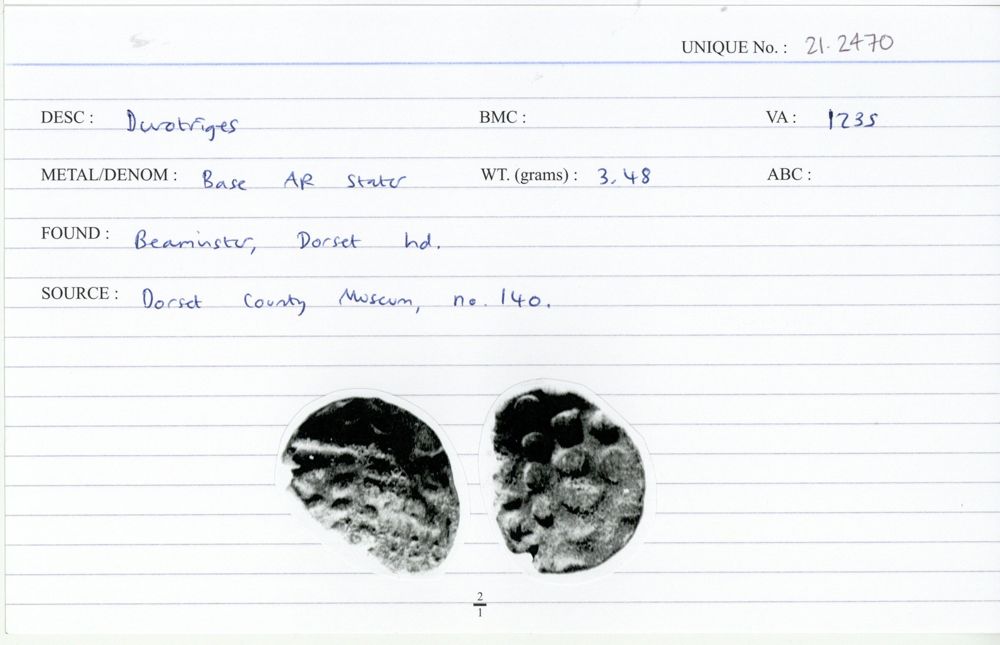 UNIQUE No. : 21.2470
DESC : Durotriges BMC : VA : 1235
METAL/DENOM : Base AR Stater WT. (grams) : 3.48 ABC :
FOUND : Beaminster, Dorset hd.
SOURCE : Dorset County Museum, no. 140.
2
1